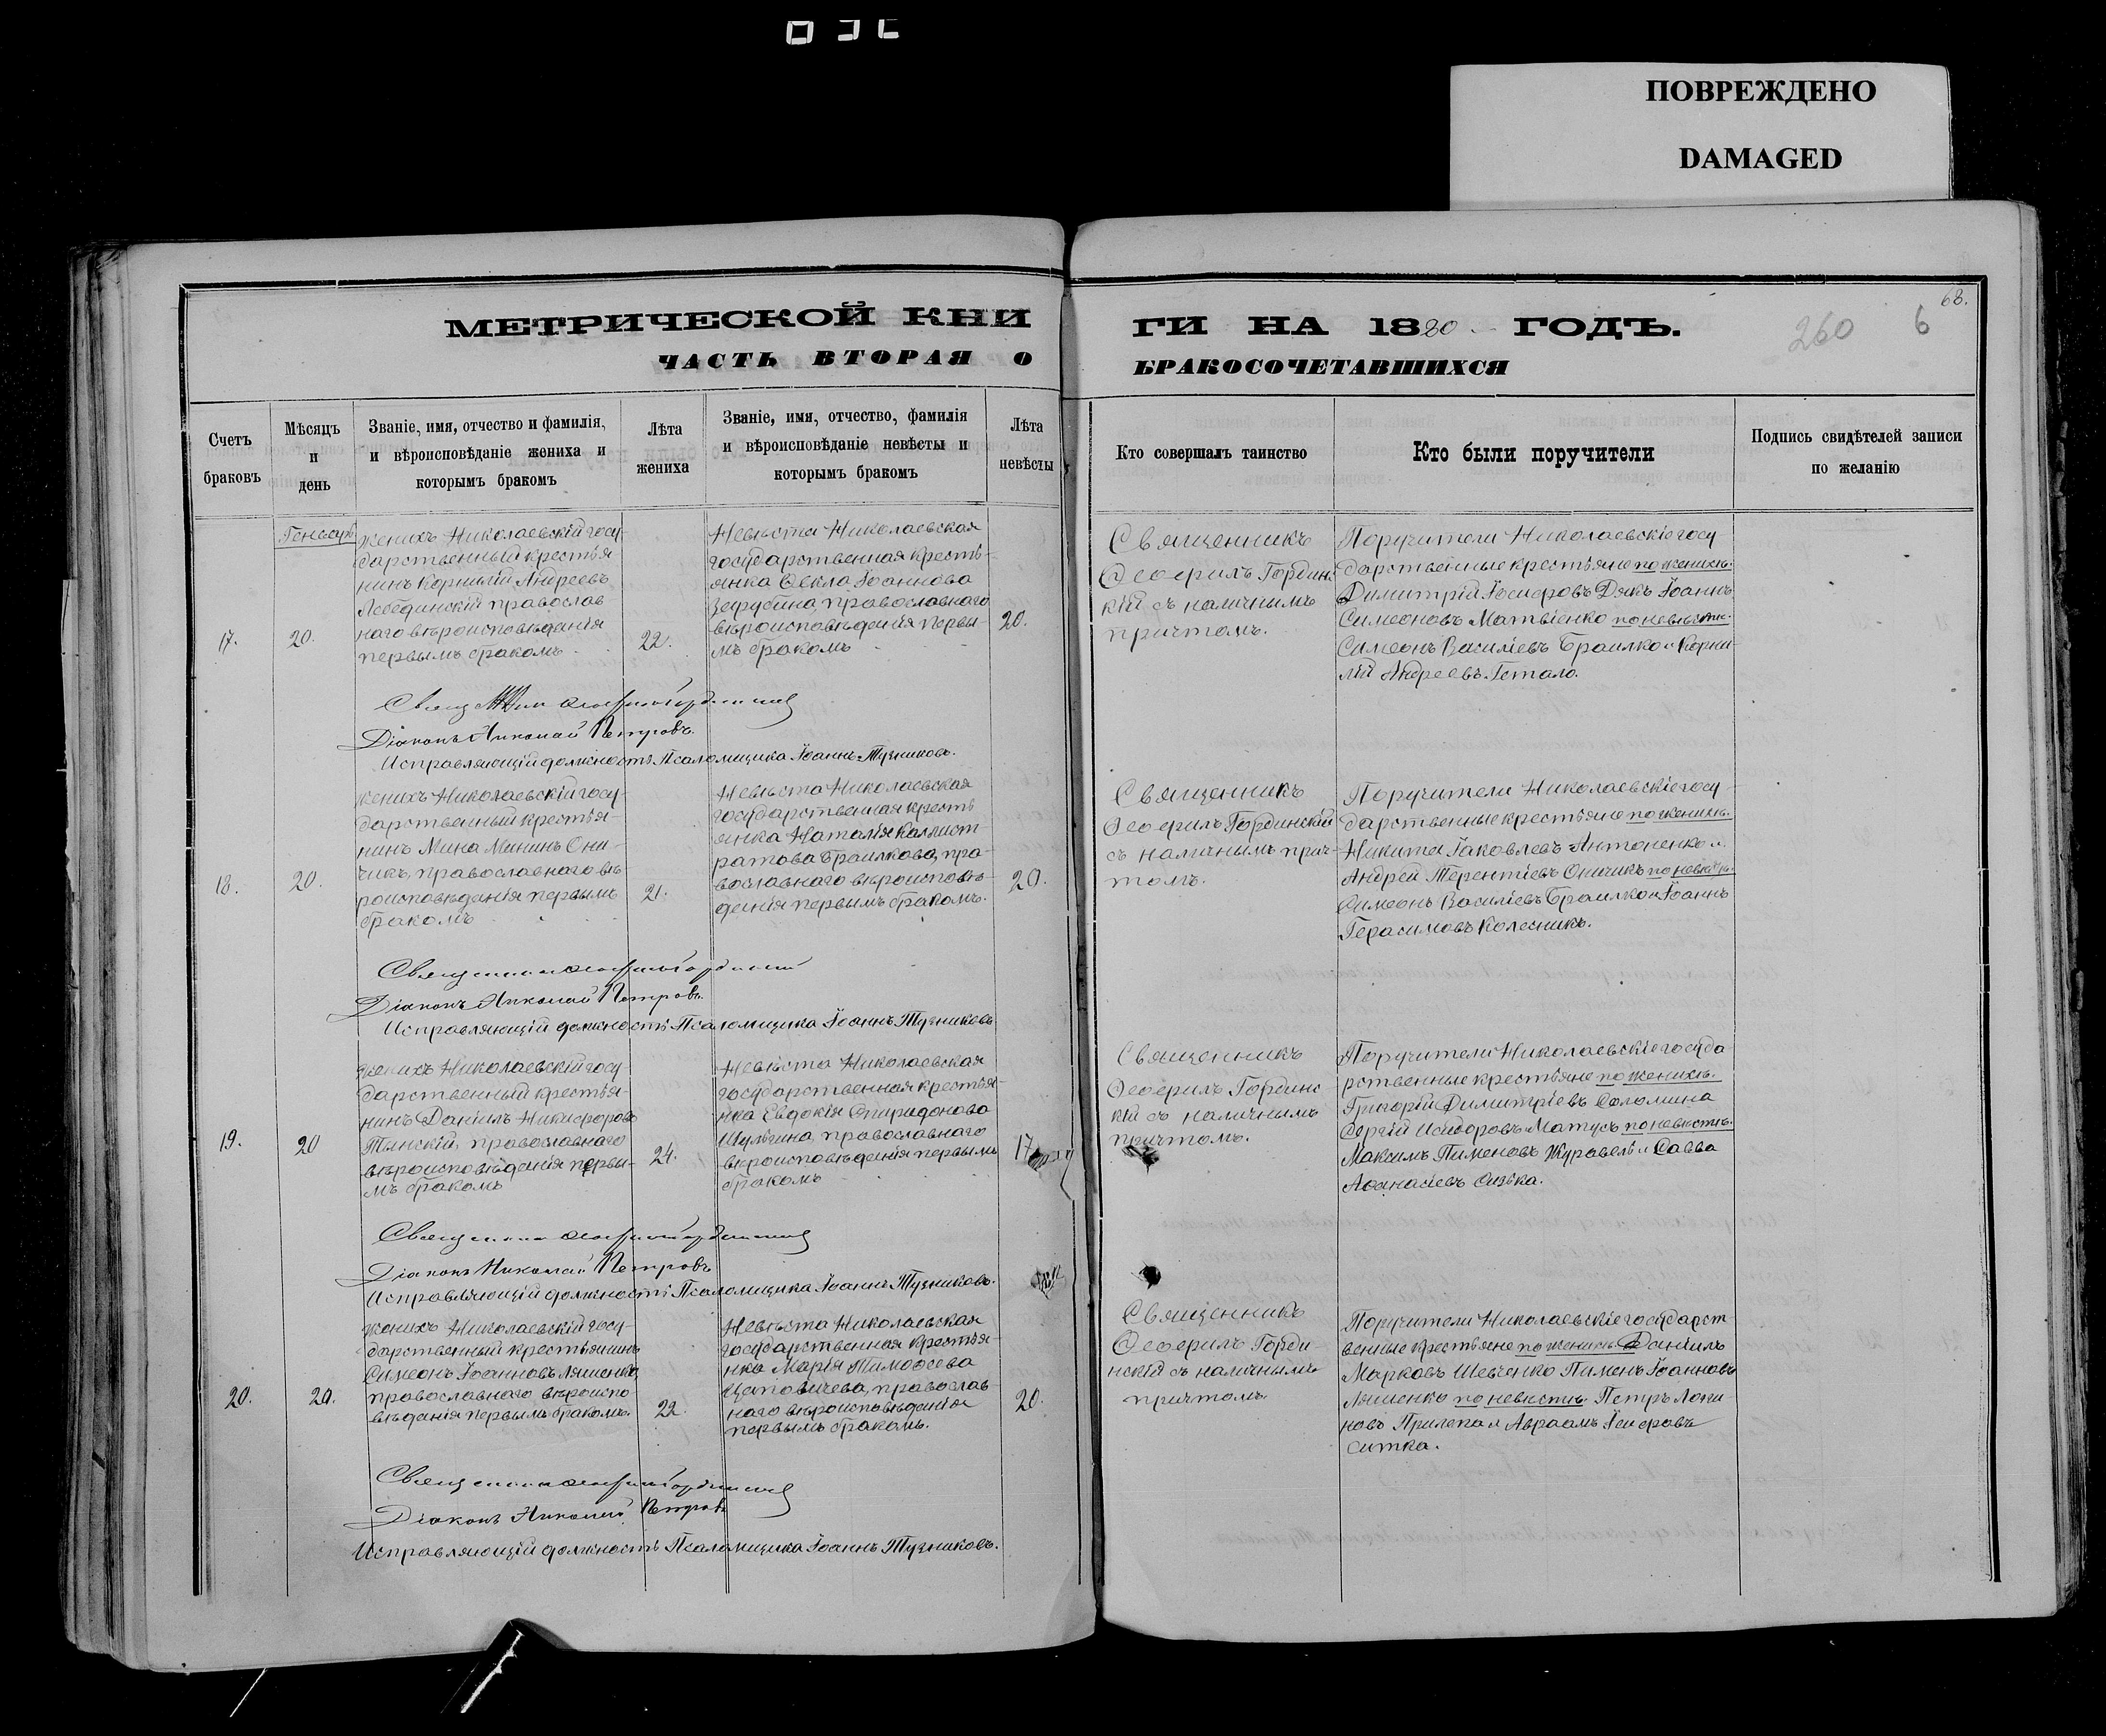 ПОВРЕЖДЕНО
DAMAGED
68.
260
6
МЕТРИЧЕСКОЙ КНИ
ГИ НА 1880 ГОДЪ.
ЧАСТЬ ВТОРАЯ О
БРАКОСОЧЕТАВШИХСЯ
Счетъ
браковъ
Мѣсяцъ
и
день
Званіе, имя, отчество и фамилія,
и вѣроисповѣданіе жениха и
которымъ бракомъ
Лѣта
жениха
Званіе, имя, отчество, фамилія
и вѣроисповѣданіе невѣсты и
которымъ бракомъ
Лѣта
невѣсты
Кто совершалъ таинство
Кто были поручители
Подпись свидѣтелей записи
по желанію
17.
Генварь
20.
Женихъ Николаевскій госу-
дарственный крестья-
нинъ Корнилій Андреевъ
Лебединскій православ-
наго вѣроисповѣданія
первымъ бракомъ
22.
Невѣста Николаевская
государственная кресть-
янка Ѳекла Іоаннова
Зарубина, православнаго
вѣроисповѣданія первы-
мъ бракомъ
20.
Священникъ
Ѳеофилъ Гординс
кій съ наличнымъ
причтомъ.
Поручители Николаевскіе госу-
дарственные крестьяне по женихѣ:
Димитрій Іосифовъ Дякъ Іоаннъ
Симеоновъ Матвіенко по невѣстѣ.
Симеонъ Василіевъ Браилко и Корни-
лій Андреевъ Гетало.
Священникъ Ѳеофилъ Гординскій
Діаконъ Николай Петровъ.
Исправляющій должность Псаломщика Іоаннъ Тузниковъ.
18.
20.
Женихъ Николаевскій госу-
дарственный крестья-
нинъ Мина Мининъ Они-
чикъ, православнаго вѣ-
роисповѣданія первымъ
бракомъ
21.
Невѣста Николаевская
государственная кресть
янка Наталія Каллист-
ратова Браилкова, пра-
вославнаго вѣроисповѣ-
данія первымъ бракомъ.
20.
Священникъ
Ѳеофилъ Гординскій
съ наличнымъ прич-
томъ.
Поручители Николаевскіе госу-
дарственные крестьяне по женихѣ.
Никита Іаковлевъ Антоненко и
Андрей Терентіевъ Оничикъ по невѣстѣ.
Симеонъ Василіевъ Браилко и Іоаннъ
Герасимовъ Колесникъ.
Священникъ Ѳеофилъ Гординскій
Діаконъ Николай Петровъ.
Исправляющій должность Псаломщика Іоаннъ Тузниковъ
19.
20
Женихъ Николаевскій госу-
дарственный крестья-
нинъ Даніилъ Никифоровъ
Тынскій, православнаго
вѣроисповѣданія первы-
мъ бракомъ
24.
Невѣста Николаевская
государственная крестья-
нка Евдокія Спиридонова
Шульгина, православнаго
вѣроисповѣданія первымъ
бракомъ
17
Священникъ
Ѳеофилъ Гординс
кій съ наличнымъ
причтомъ.
Поручители Николаевскіе госуда-
рственные крестьяне по женихѣ.
Григорій Димитріевъ Соломина
Сергій Исидоровъ Матусъ по невѣстѣ.
Максимъ Пименовъ Журавель и Савва
Аѳанасіевъ Сизька.
Священникъ Ѳеофилъ Гординскій
Діаконъ Николай Петровъ
Исправляющій должность Псаломщика Іоаннъ Тузниковъ.
20.
20.
Женихъ Николаевскій госу-
дарственный крестьянинъ
Симеонъ Іоанновъ Ляшенко,
православнаго вѣроиспо-
вѣданія первымъ бракомъ.
22
Невѣста Николаевская
государственная крестья-
нка Марія Тимоѳеева
Цаповичева, православ-
наго вѣроисповѣданія
первымъ бракомъ.
20.
Священникъ
Ѳеофилъ Горди-
нскій съ наличнымъ
причтомъ.
Поручители Николаевскіе государст
венные крестьяне по женихѣ. Даніилъ
Марковъ Шевченко Пименъ Іоанновъ
Ляшенко по невѣстѣ. Петръ Логи-
новъ Прилепа и Авраамъ Іосифовъ
Ситка.
Священникъ Ѳеофилъ Гординскій
Діаконъ Николай Петровъ
Исправляющій должность Псаломщика Іоаннъ Тузниковъ.